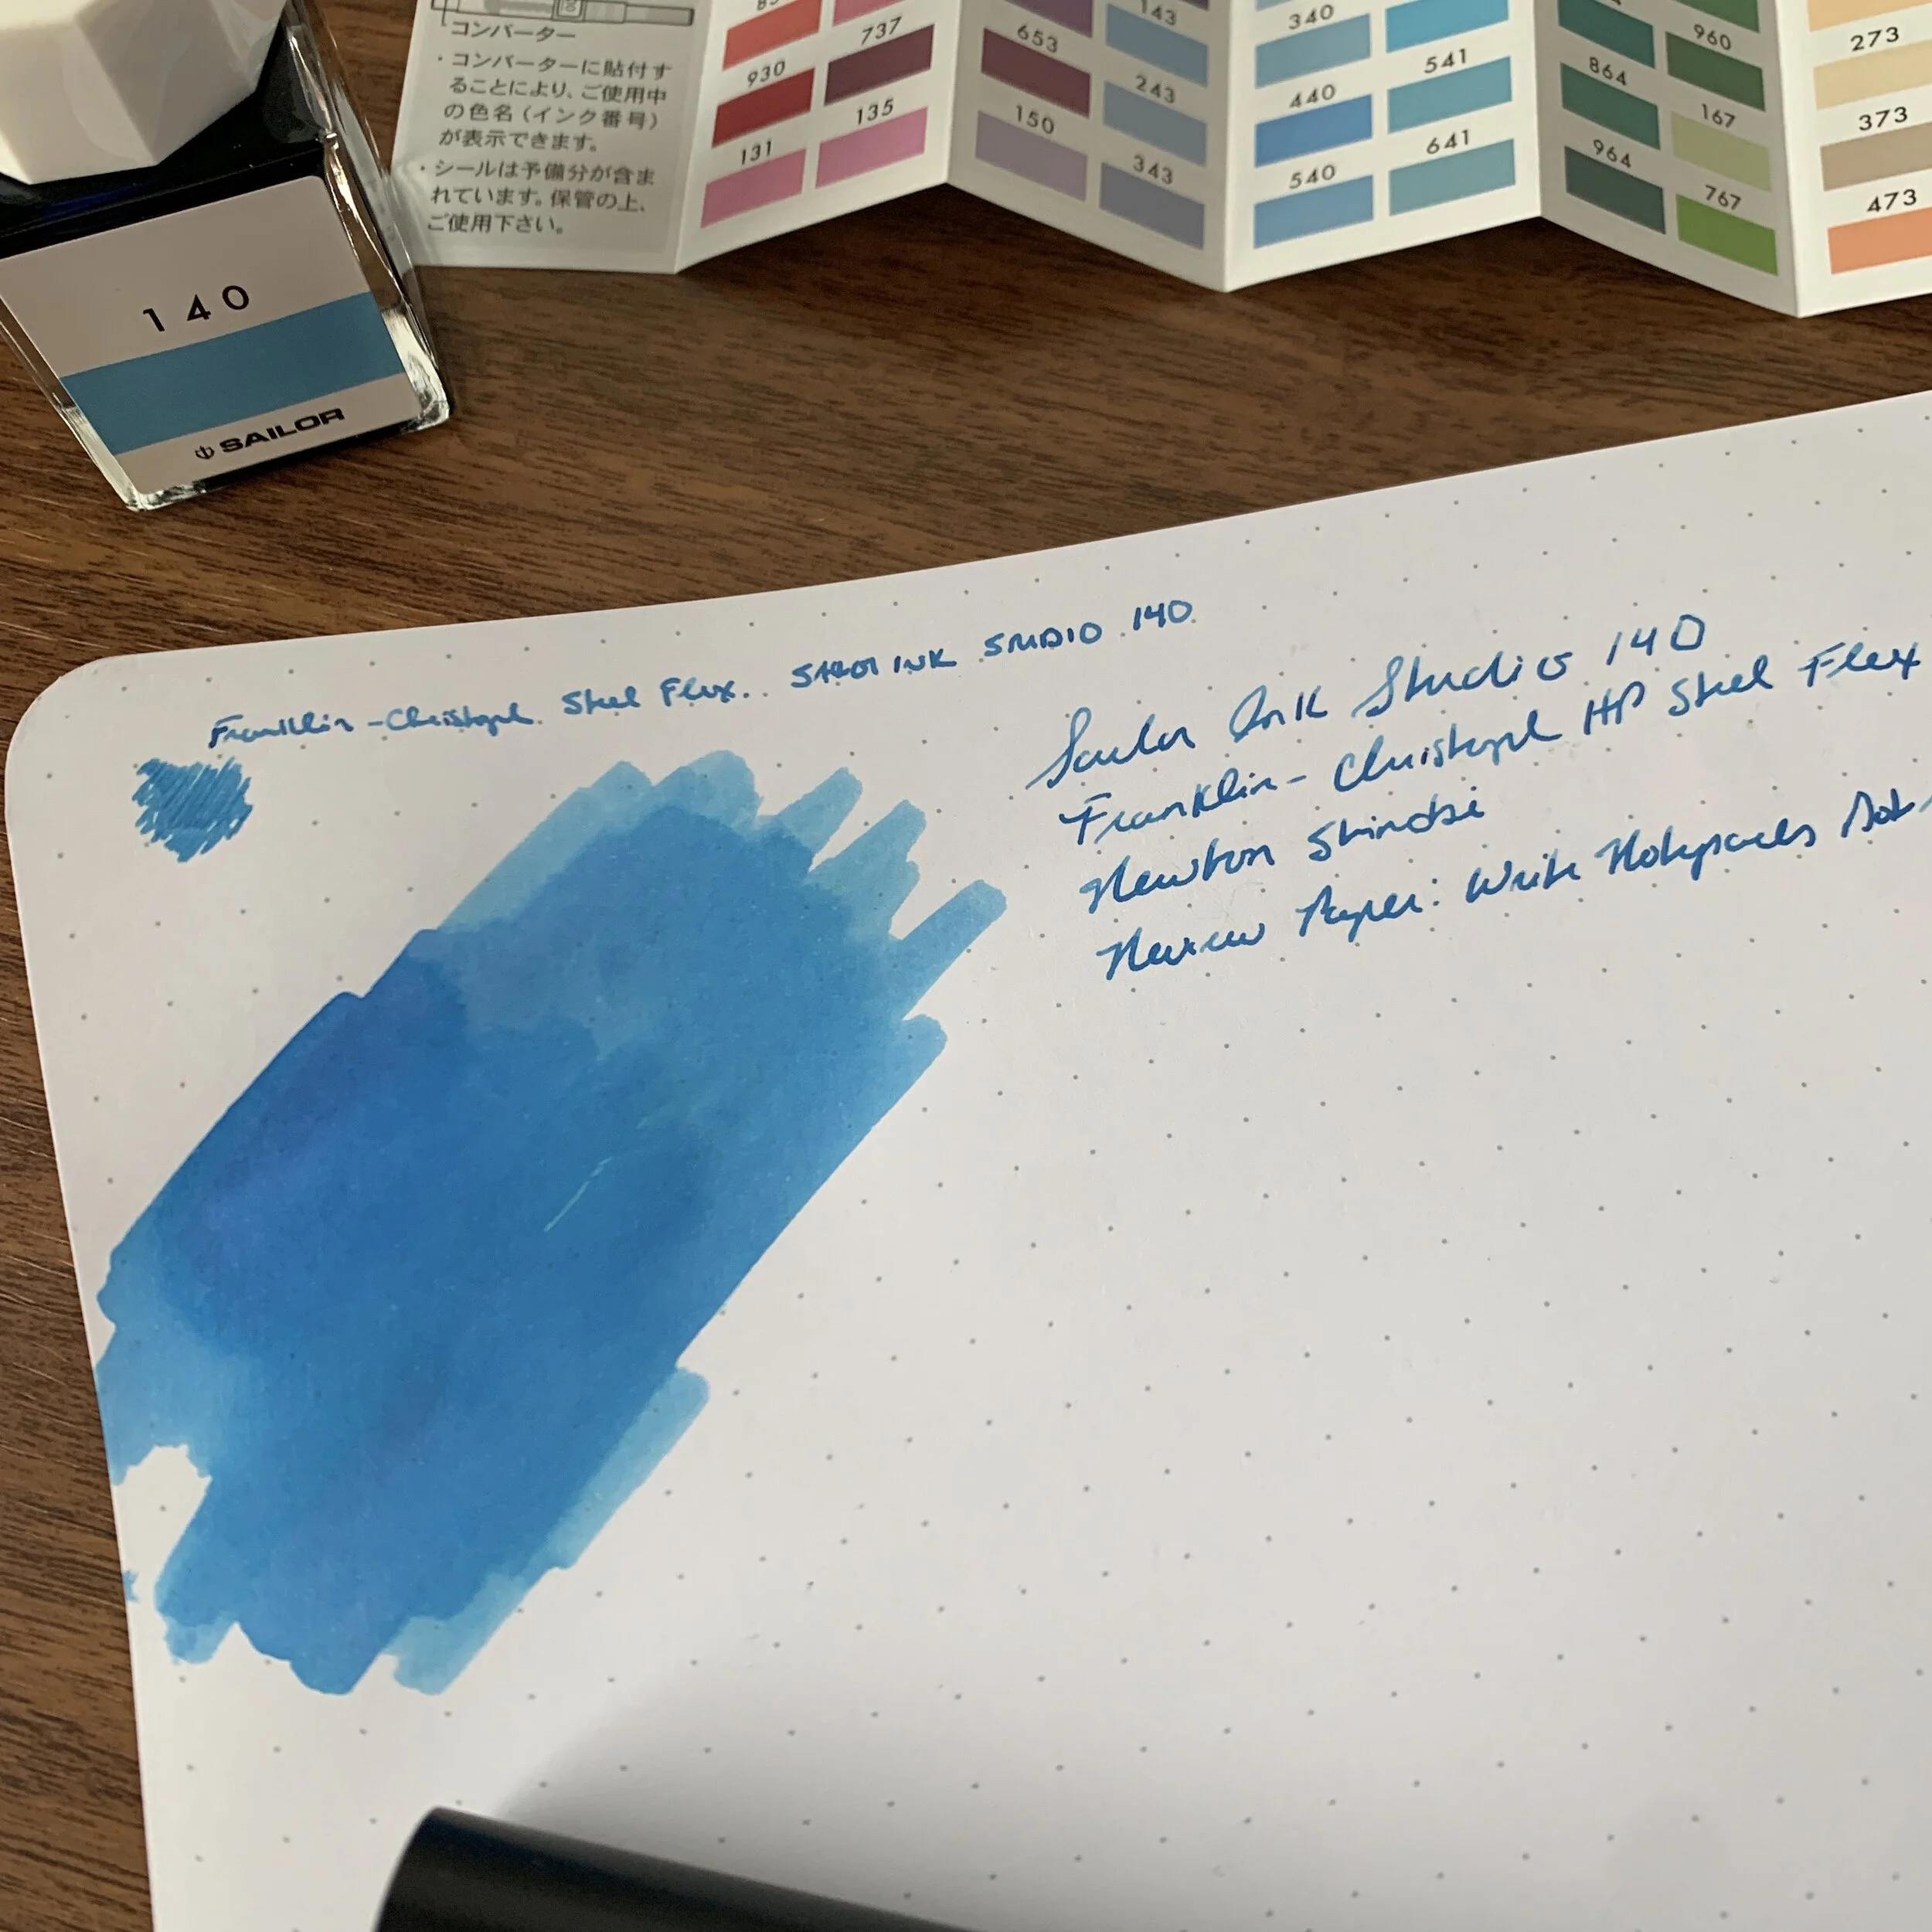 コンバーター
・コンバーターに貼付す
ることにより、ご使用中
の色名（インク番号）
が表示できます。
・シールは予備分が含ま
れています。保管の上、
ご使用下さい。
737
930
135
131
143
653
243
150
343
340
541
440
641
540
960
864
167
964
767
273
373
473
140
SAILOR
Franklin-Christoph Steel Flex. SAILOR INK STUDIO 140
Sailor Ink Studio 140
Franklin-Christoph HP Steel Flex
Newton Shinobi
Review Paper: Write Notepads Dot